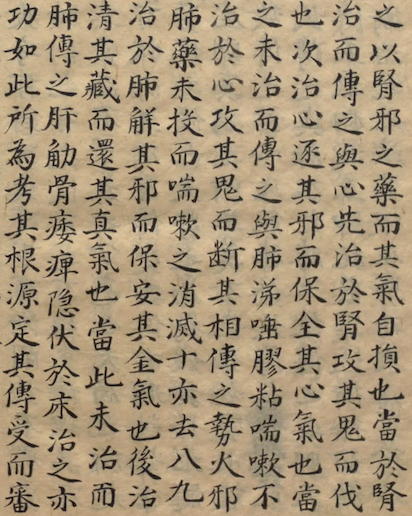 之以腎邪之藥而其氣自損也當於腎
治而傳之與心先治於腎攻其鬼而伐
也次治心逐其邪而保全其心氣也當
之未治而傳之與肺涕唾膠粘喘嗽不
治於心攻其鬼而断其相傳之勢火邪
肺藥未投而喘嗽之消滅十亦去八九
治於肺解其邪而保安其金氣也後治
清其藏而還其真氣也當此未治而
肺傳之肝觔骨痿痺隐伏於床治之亦
功如此所為考其根源定其傳受而審